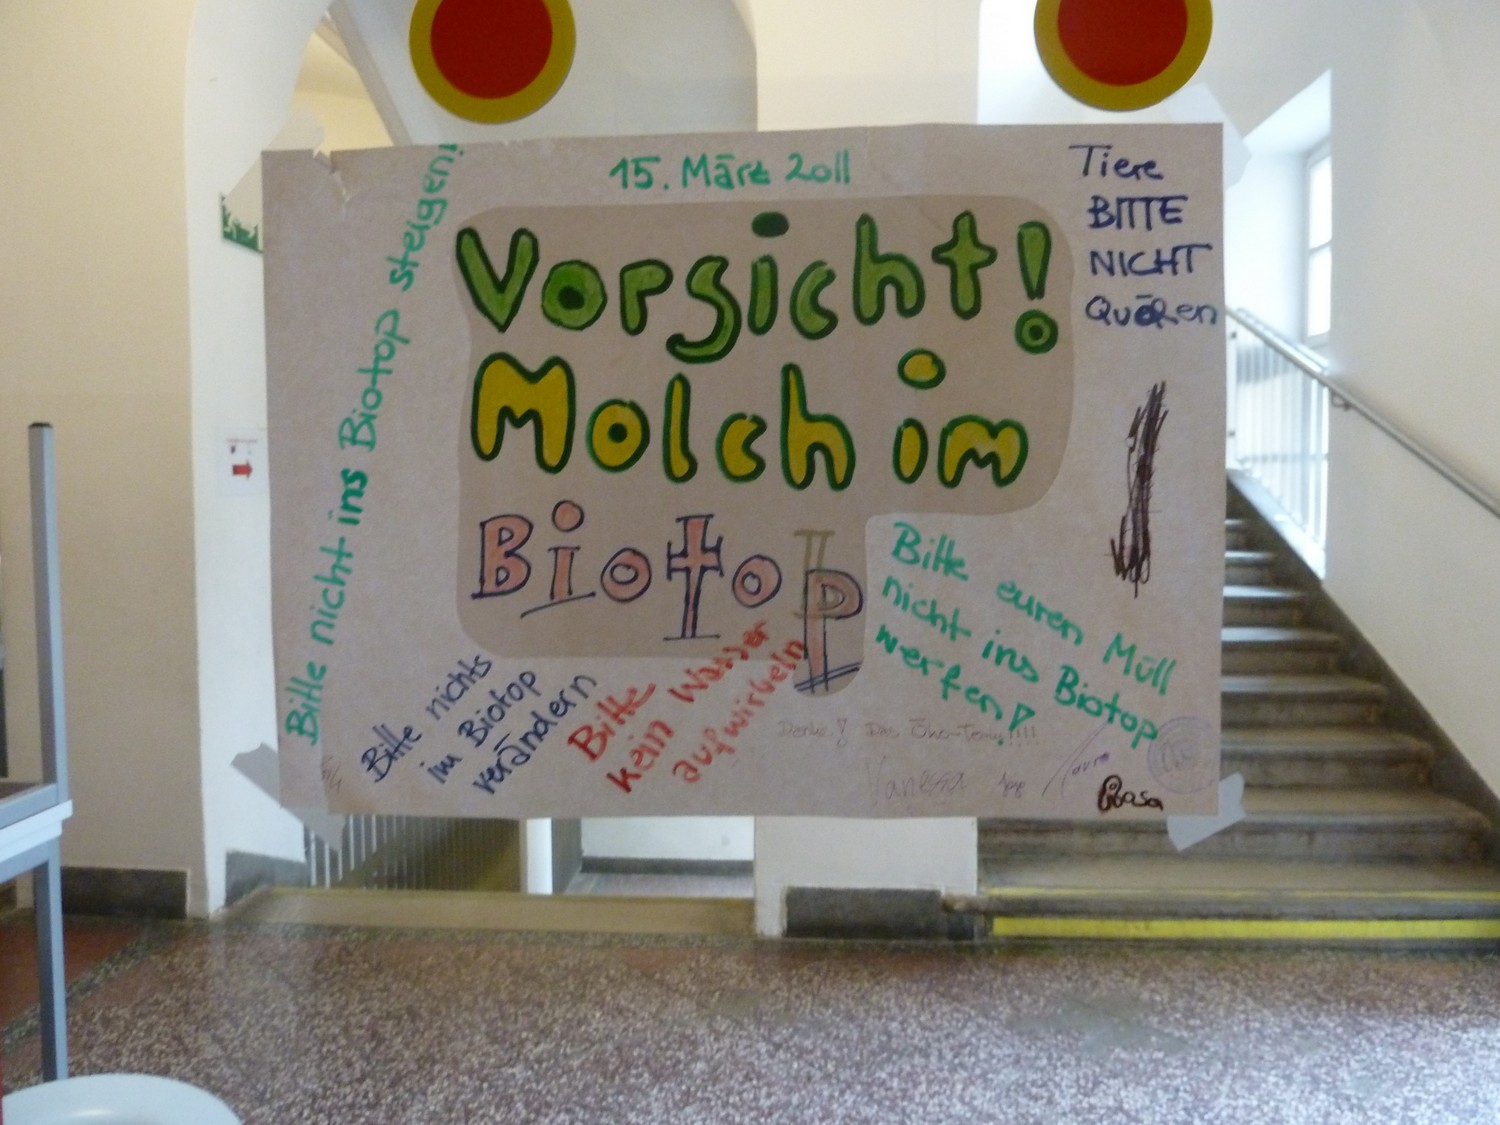 15. März 2011
Tiere
BITTE
NICHT
Quälen
Vorsicht!
Molch im
Biotop
Bitte nicht ins Biotop steigen!
Bitte nichts
im Biotop
verändern
Bitte
kein Wasser
aufwirbeln
Bitte euren Müll
nicht ins Biotop
werfen!
Danke! Das Öko-Team!!!!
Vanessa
Laura
Rasa